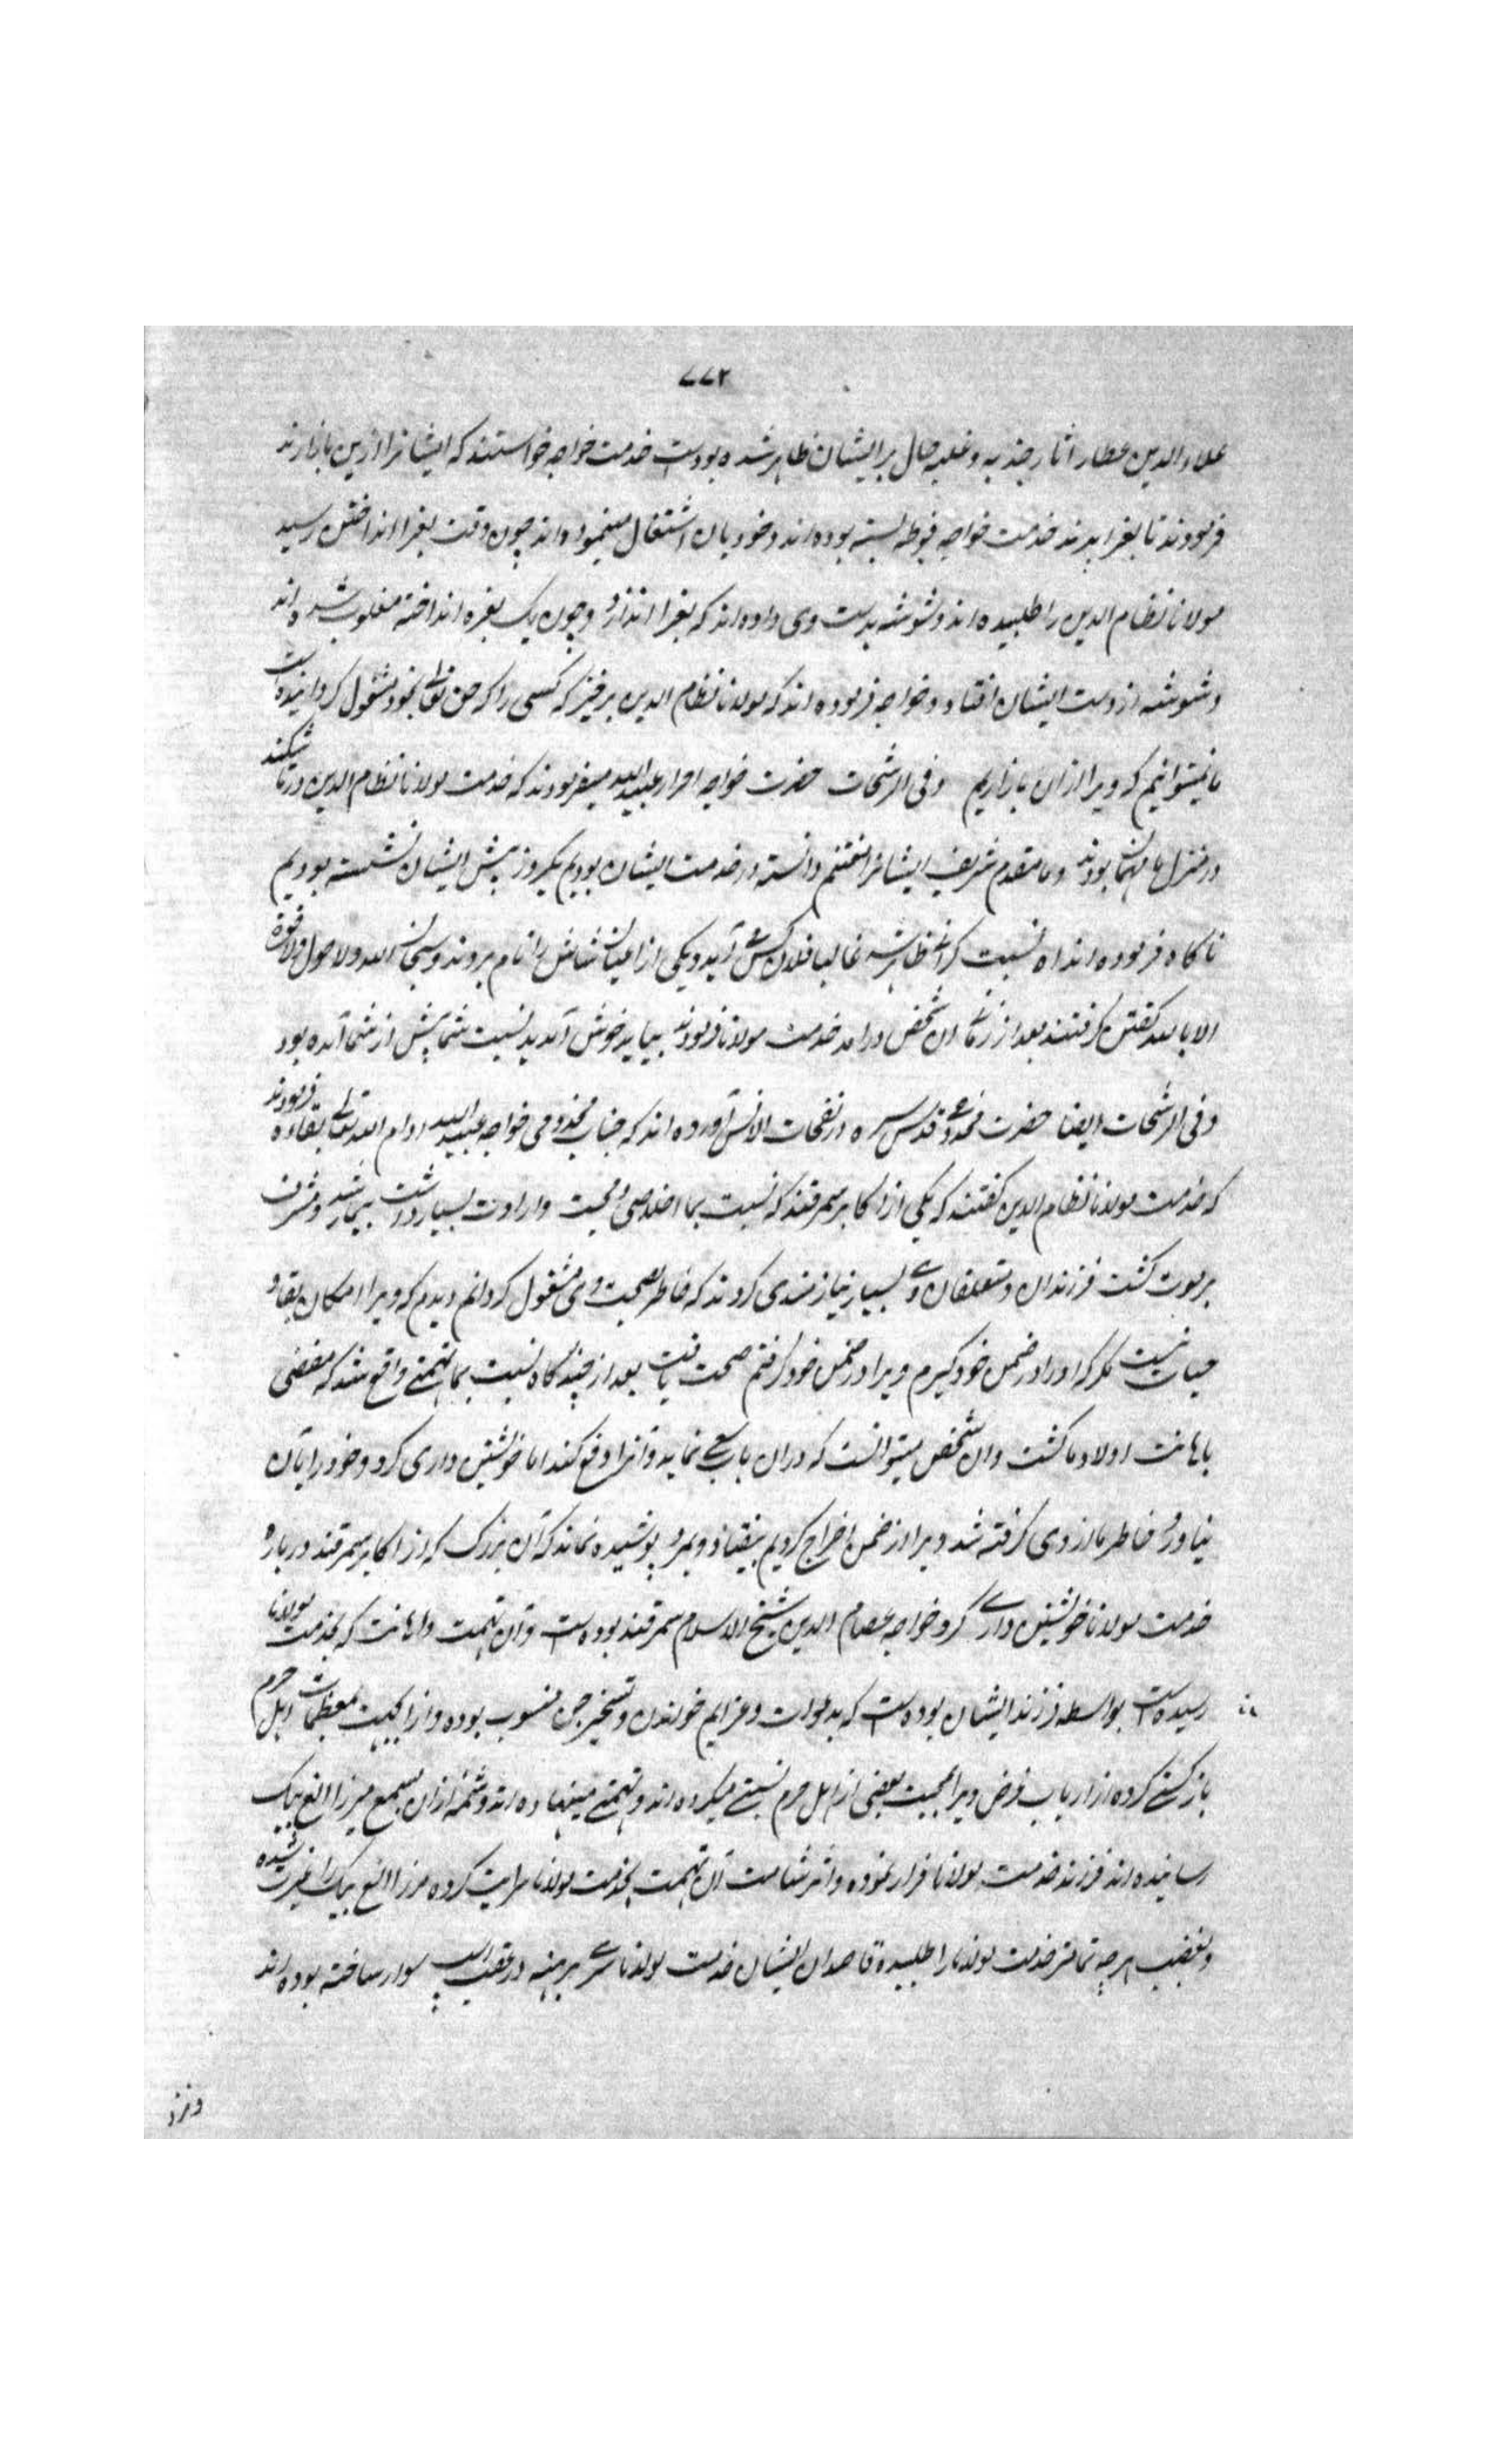 ۷۷۲
علاء الدین عطار اثار جذبه و غلبه حال بر ایشان ظاهر شده بودست خدمت خواجه خواستند که ایشانرا ازین بازارند
فرمودند تا بغرا پزند خدمت خواجه فوطه بسته بوده‌اند و خود بان اشتغال مینموده‌اند چون وقت بغرا انداختن رسید
مولانا نظام الدین را طلبیده‌اند و شوشه بدست وی داده‌اند که بغرا اندازد و چون یک بغره انداخته مغلوب شده‌اند
و شوشه از دست ایشان افتاد و خواجه فرموده‌اند که مولانا نظام الدین برخیز که کسی را که حق تعالی بخود مشغول گردانیده است
ما نمیتوانیم که ویرا ازان بازاریم وفی الرشحات حضرت خواجه احرار عبیدالله میفرمودند که خدمت مولانا نظام الدین در تاشکند
در منزل ما مهمان بودند و ما مقدم شریف ایشانرا مغتنم دانسته در خدمت ایشان بودیم یکروز پیش ایشان نشسته بودیم
ناکاه فرموده‌اند اه نسبت کرانی ظاهر شد غالبا فلان کس می‌آید و یکی از اعیان شاش را نام بردند و سبحان الله و لا حول ولا قوة
الا بالله گفتن گرفتند بعد از زمانی ان شخص درامد خدمت مولانا فرمودند بیایید خوش آمدید نسبت شما پیش از شما آمده بود
وفی الرشحات ایضا حضرت مخدومی قدس سره در نفحات الانس آورده‌اند که جناب مخدومی خواجه عبیدالله ادام الله تعالی بقاءه فرمودند
که خدمت مولانا نظام الدین گفتند که یکی از اکابر سمرقند که نسبت بما اخلاص و محبت و ارادت بسیار داشت بیمار شد و مشرف
بر موت گشت فرزندان و متعلقان وی بسیار نیازمندی کردند که خاطر بصحت وی مشغول گردانم دیدم که ویرا امکان بقا و
حیات نیست مگر که او را در ضمن خود گیرم ویرا در ضمن خود گرفتم صحت یافت بعد از چند گاه نسبت بما تهمتی واقع شد که مفضی
باهانت اولاد ما گشت وان شخص میتوانست که دران باب سعی نماید و آنرا دفع کند اما خویشتن داری کرد و خود را بآن
نیاورد خاطر ما از وی گرفته شد ویرا از ضمن اخراج کردیم بیفتاد و بمرد پوشیده نماند که آن بزرگ که از اکابر سمرقند درباره
خدمت مولانا خویشتن داری کرد خواجه عصام الدین شیخ الاسلام سمرقند بوده‌است و آن تهمت و اهانت که بخدمت مولانا
رسیده‌است بواسطه فرزند ایشان بوده‌است که بدعوات و عزایم خواندن و تسخیر جن منسوب بوده و ازانجهت بمعظمات اهل حرم
بازگشتی کرده از ارباب غرض ویرا بمحبت بعضی از اهل حرم نسبتی میکرده‌اند و تهمتی مینهاده‌اند و شمه ازان بسمع میرزا الغ بیک
رسانیده‌اند فرزند خدمت مولانا فرار نموده و اثر شامت آن تهمت بخدمت مولانا سرایت کرده مرزا الغ بیک را غیرت شده
و بغضب هرچه تمامتر خدمت مولانا را طلبیده قاصدان ایشان خدمت مولانا سر برهنه در عقب اسپ سوار ساخته بوده‌اند
ونزد